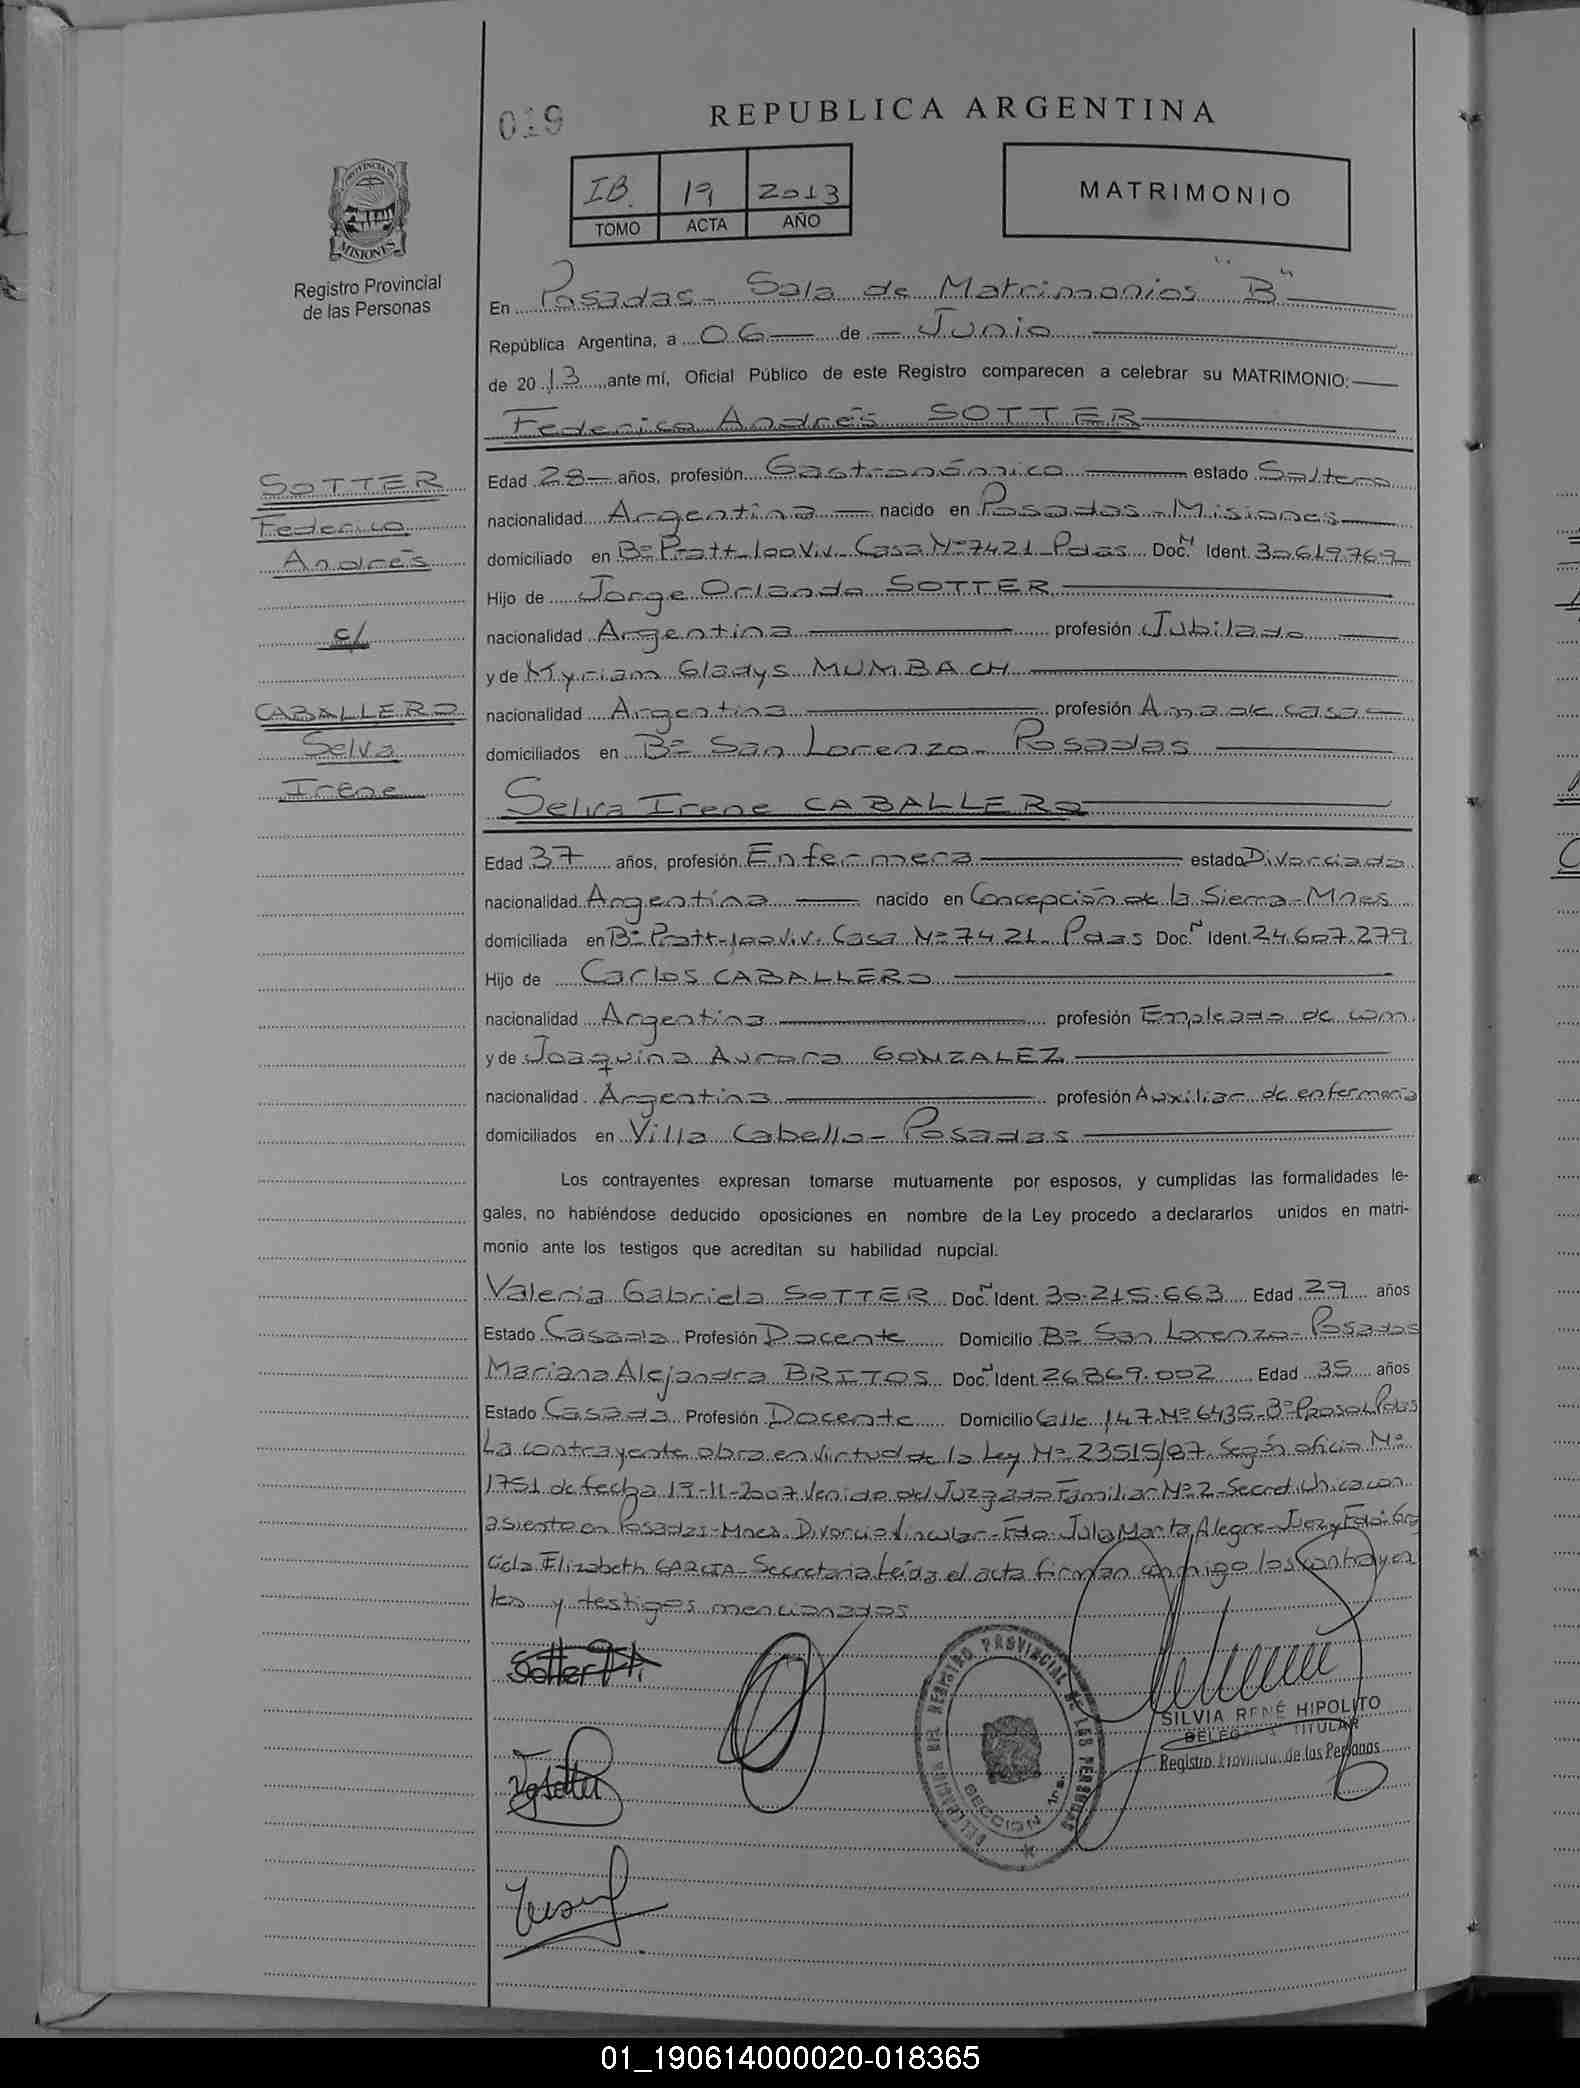 019
REPUBLICA ARGENTINA
IB. 19 2013
TOMO ACTA AÑO
MATRIMONIO
PROVINCIA DE
MISIONES
Registro Provincial
de las Personas
En Posadas - Sala de Matrimonios "B"
República Argentina, a 06 de Junio
de 2013 ante mí, Oficial Público de este Registro comparecen a celebrar su MATRIMONIO:
Federico Andrés SOTTER
SOTTER
Federico
Andrés
c/
CABALLERO
Selva
Irene
Edad 28 años, profesión Gastronómico estado Soltero
nacionalidad Argentina nacido en Posadas - Misiones
domiciliado en Bº Pratt-100 Viv. Casa Nº 7421 - Pdas Doc. N Ident. 30619769
Hijo de Jorge Orlando SOTTER
nacionalidad Argentina profesión Jubilado
y de Myriam Gladys MUMBACH
nacionalidad Argentina profesión Ama de casa
domiciliados en Bº San Lorenzo - Posadas
Selva Irene CABALLERO
Edad 37 años, profesión Enfermera estado Divorciada
nacionalidad Argentina nacido en Concepción de la Sierra - Mnes
domiciliada en Bº Pratt-100 Viv. Casa Nº 7421 - Pdas Doc. N Ident. 24.607.279
Hijo de Carlos CABALLERO
nacionalidad Argentina profesión Empleado de com.
y de Joaquina Aurora GONZALEZ
nacionalidad Argentina profesión Auxiliar de enfermería
domiciliados en Villa Cabello - Posadas
Los contrayentes expresan tomarse mutuamente por esposos, y cumplidas las formalidades le-
gales, no habiéndose deducido oposiciones en nombre de la Ley procedo a declararlos unidos en matri-
monio ante los testigos que acreditan su habilidad nupcial.
Valeria Gabriela SOTTER Doc. N Ident. 30.215.663 Edad 29 años
Estado Casada Profesión Docente Domicilio Bº San Lorenzo - Posadas
Mariana Alejandra BRITOS Doc. N Ident. 26869.002 Edad 35 años
Estado Casada Profesión Docente Domicilio Calle 147 Nº 6435 - Bº Prosol Pdas
La contrayente obra en virtud de la Ley Nº 23515/87. Según oficio Nº
1751 de fecha 19-11-2007 venido del Juzgado Familiar Nº 2 - Secret. Unica con
asiento en Posadas - Mnes. Divorcio Vincular - Fdo. Julia Marta Alegre - Juez y Fdo: Gra
ciela Elizabeth GARCIA - Secretaria Leída el acta firman conmigo los contrayen
tes y testigos mencionados
Sotter F.A.
DELEGACION DEL REGISTRO PROVINCIAL DE LAS PERSONAS
SECCION 1ra.
SILVIA RENÉ HIPOLITO
DELEGADA TITULAR
Registro Provincial de las Personas
01_190614000020-018365